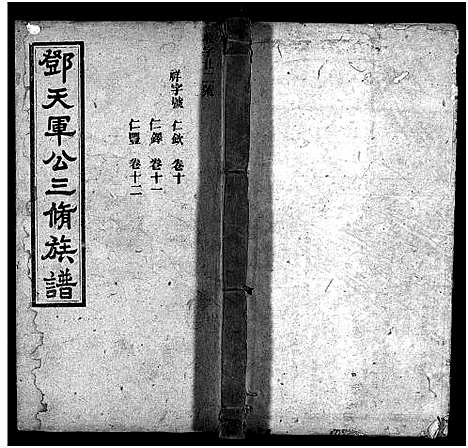 鄧天軍公三脩族譜
祥字號 仁欽 卷十
仁鐸 卷十一
仁豐 卷十二